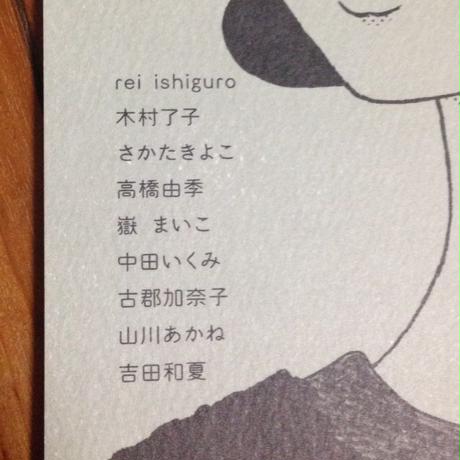 rei ishiguro
木村了子
さかたきよこ
高橋由季
嶽 まいこ
中田いくみ
古郡加奈子
山川あかね
吉田和夏